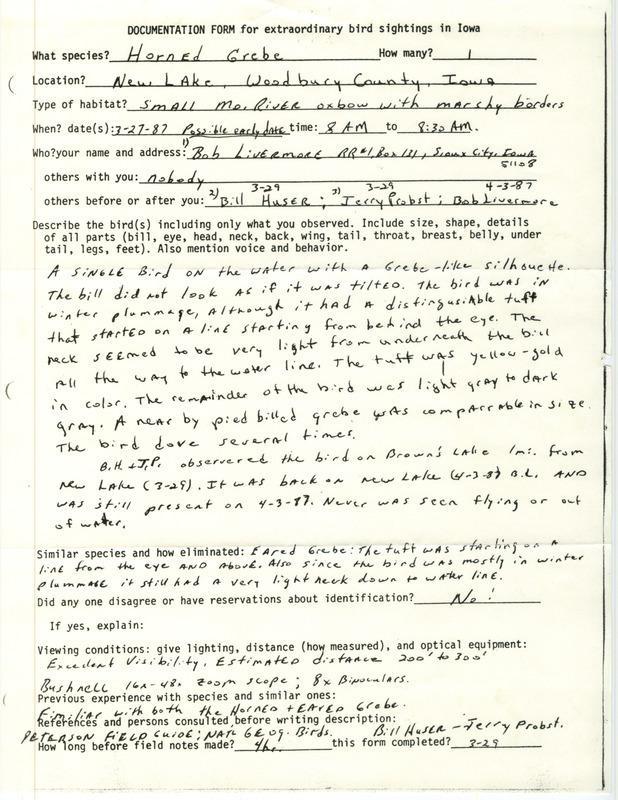 DOCUMENTATION FORM for extraordinary bird sightings in Iowa
What species? Horned Grebe How many? 1
Location? New Lake, Woodbury County, Iowa
Type of habitat? Small Mo. River oxbow with marshy borders
When? date(s): 3-27-87 Possible early date time: 8 AM to 8:30 AM.
Who?your name and address: 1) Bob Livermore RR#1, Box 131, Sioux City, Iowa
51108
others with you: nobody
3-29 3-29 4-3-87
others before or after you: 2) Bill Huser ; 3) Jerry Probst ; Bob Livermore
Describe the bird(s) including only what you observed. Include size, shape, details
of all parts (bill, eye, head, neck, back, wing, tail, throat, breast, belly, under
tail, legs, feet). Also mention voice and behavior.
A single Bird on the water with a Grebe-like silhouette.
The bill did not look as if it was tilted. The bird was in
winter plummage, Although it had a distingusiable tuft
that started on a line starting from behind the eye. The
neck seemed to be very light from underneath the bill
all the way to the water line. The tuft was yellow-gold
in color. The remainder of the bird was light gray to dark
gray. A near by pied billed grebe was comparrable in size.
The bird dove several times.
B.H. + J.P. observered the bird on Brown's Lake 1 mi. from
new Lake (3-29). It was back on new Lake (4-3-87) B.L. AND
was still present on 4-3-87. Never was seen flying or out
of water.
Similar species and how eliminated: Eared Grebe: The tuft was starting on a
line from the eye AND above. Also since the bird was mostly in winter
plummage it still had a very light neck down to water line.
Did any one disagree or have reservations about identification? No!
If yes, explain:
Viewing conditions: give lighting, distance (how measured), and optical equipment:
Excellent Visibility, Estimated distance 200' to 300'
Bushnell 16x-48x zoom scope ; 8x Binoculars.
Previous experience with species and similar ones:
Fimiliar with both the Horned + Eared Grebe.
References and persons consulted before writing description:
Peterson Field Guide; Nat'l Geog. Birds. Bill Huser - Jerry Probst.
How long before field notes made? 4 hr. this form completed? 3-29